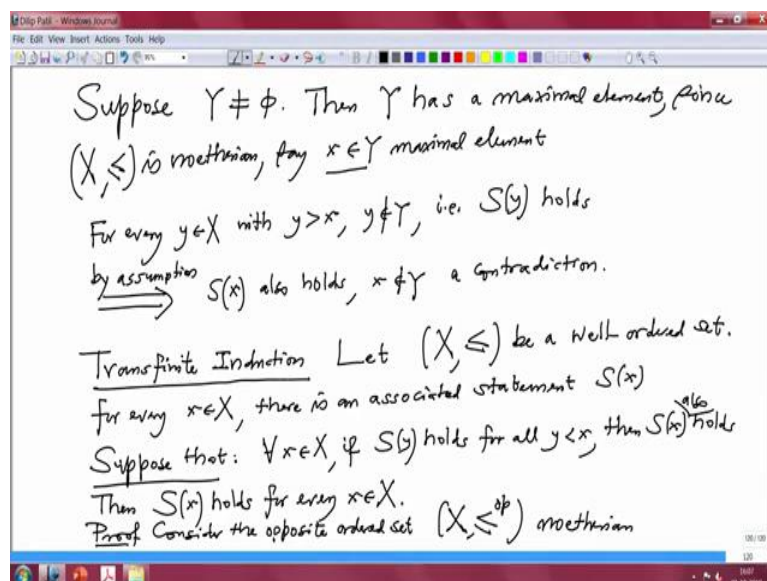 Dilip Patil - Windows Journal
File Edit View Insert Actions Tools Help
Suppose Y ≠ φ. Then Y has a maximal element, since
(X, ≤) is noetherian, say x ∈ Y maximal element
For every y ∈ X with y > x, y ∉ Y, i.e. S(y) holds
by assumption ⟹ S(x) also holds, x ∉ Y a contradiction.
Transfinite Induction Let (X, ≤) be a well ordered set.
For every x ∈ X, there is an associated statement S(x)
Suppose that: ∀ x ∈ X, if S(y) holds for all y < x, then S(x) also holds
Then S(x) holds for every x ∈ X.
Proof Consider the opposite ordered set (X, ≤^op) noetherian
120/120
120
16:07